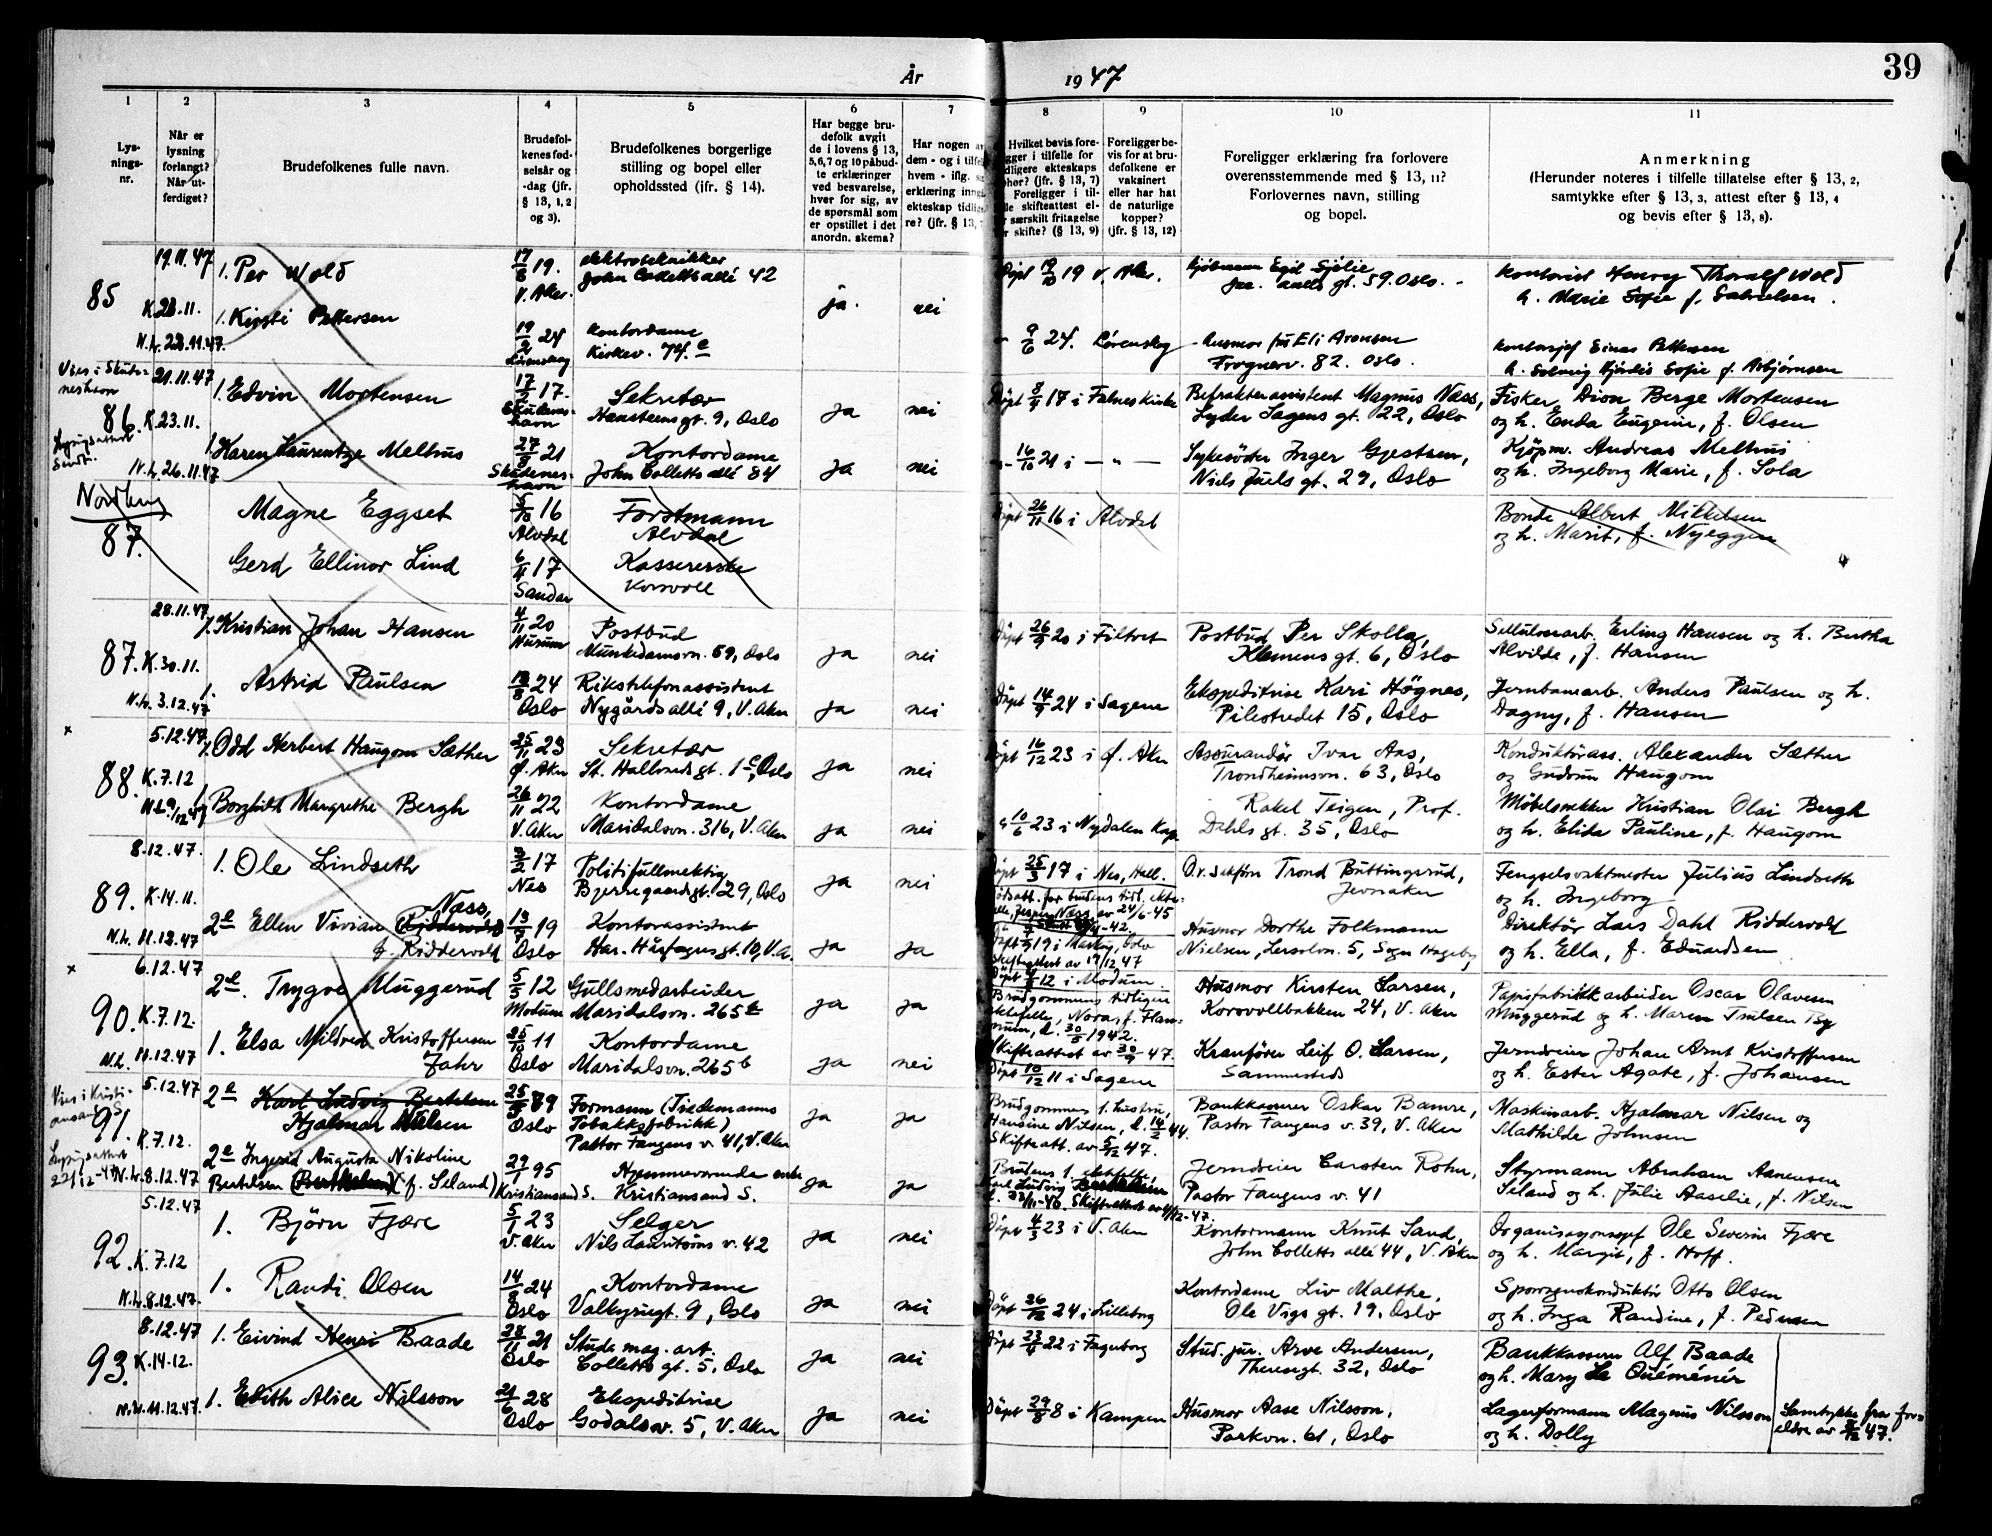 39
År 1947
1 2 3 4 5 6 7 8 9 10 11
Lys-
nings-
nr.
Når er
lysning
forlangt?
Når ut-
ferdiget?
Brudefolkenes fulle navn.
Brudefol-
kenes fød-
selsår og
-dag (jfr.
§ 13, 1, 2
og 3).
Brudefolkenes borgerlige
stilling og bopel eller
opholdssted (jfr. § 14).
Har begge bru-
defolk avgit
de i lovens § 13,
5, 6, 7 og 10 påbud-
te erklæringer
ved besvarelse,
hver for sig, av
de spørsmål som
er opstillet i det
anordn. skema?
Har nogen a
dem - og i tilfel
hvem - iflg. s
erklæring inng
ekteskap tidlig
re? (jfr. § 13,
Hvilket bevis fore-
gger i tilfelle for
dligere ekteskaps
phør? (jfr. § 13, 7)
Foreligger i til-
le skifteattest el-
r særskilt fritagelse
r skifte? (§ 13, 9)
Foreligger be-
vis for at bru-
defolkene er
vaksinert
eller har hat
de naturlige
kopper?
(jfr. § 13, 12)
Foreligger erklæring fra forlovere
overensstemmende med § 13, 11?
Forlovernes navn, stilling
og bopel.
Anmerkning
(Herunder noteres i tilfelle tillatelse efter § 13, 2,
samtykke efter § 13, 3, attest efter § 13, 4
og bevis efter § 13, 8).
85 19.11.47 1. Per Wold 17/6 19. elektrotekniker
V. Aker. John Colletts allé 42 ja. nei
Døpt 19/10 19 V. Aker. Egil Sjølie gt. 59. Oslo. kontorist Henry Thoralf Wold
h. Marie Sofie f. Gabrielsen.
1. Kirsti Pettersen 19/2 24 kontordame
Lørenskog Kirkev. 74.e
9/6 24. Lørenskog Husmor fru Eli Aronsen
Frognerv. 82. Oslo. kontorsjef Einar Pettersen
h. Solveig Hjørdis Sofie f. Asbjørnsen
Vies i Skude-
neshavn
86. 21.11.47 K.23.11. 1. Edvin Mortensen 17/2 17. Sekretær
Hansteensgt. 9, Oslo ja nei
Døpt 8/4 17 i Falnes kirke Befrakterassistent Magnus Næss,
Lyder Sagens gt. 22, Oslo
Fisker Dion Berge Mortensen
og h. Enda Eugenie, f. Olsen
N.L. 26.11.47 1. Karen Laurentze Melhus 27/9 21 Kontordame
Skudenes-
havn John Colletts allé 84 ja nei
16/10 21 i — " — Sykesøster Inger Gjestsen,
Niels Juels gt. 29, Oslo
Kjøpm. Andreas Melhus
og h. Ingeborg Marie, f. Sola
Nordberg
87. Magne Eggset 5/10 16 Forstmann
Alvdal Alvdal
Døpt 26/11 16 i Alvdal Bonde Albert Mikkelsen
og h. Marit, f. Nyeggen
Gerd Ellinor Lind 6/4 17 Kassererske
Sandar Korsvoll
87. 28.11.47 K.30.11. 1. Kristian Johan Hansen 4/11 20 Postbud
Hurum Munkedamsvn. 59, Oslo ja nei
Døpt 26/9 20 i Filtvet Postbud Per Skolla,
Klemens gt. 6, Oslo
Cellulosearb. Erling Hansen og h. Bertha
Alvilde, f. Hansen
N.L. 3.12.47 1. Astrid Paulsen 13/8 24 Rikstelefonassistent
Oslo Nygårds allé 9, V. Aker ja nei
Døpt 14/9 24 i Sagene Ekspeditrise Kari Høgnes,
Pilestredet 15, Oslo
Jernbanearb. Anders Paulsen og h.
Dagny, f. Hansen
88. 5.12.47 K.7.12 1. Odd Herbert Haugom Sæther 25/11 23 Sekretær
Ø. Aker St. Hallvards gt. 1 c, Oslo ja nei
Døpt 16/12 23 i Ø. Aker Assurandør Ivar Aas,
Trondheimsvn. 63, Oslo
Konduktørass. Alexander Sæther
og Gudrun Haugom
1. Borghild Margrethe Bergh 26/11 22 Kontordame
V. Aker Maridalsvn. 316, V. Aker ja nei
10/6 23 i Nydalen Kap. Rakel Teigen, Prof.
Dahls gt. 35, Oslo
Møbelsnekker Kristian Olai Bergh
og h. Elida Pauline, f. Haugom
89. 8.12.47. K.14.11. 1. Ole Lindseth 3/2 17 Politifullmektig
Nes Bjerregaardsgt. 29, Oslo ja nei
Døpt 25/3 17 i Nes, Hall. O.r. sakfører Trond Buttingsrud,
Jevnaker
Fengselsvaktmester Julius Lindseth
og h. Ingeborg
N.L. 11.12.47 2e Ellen Vivian Næss,
f. Ridderwold 13/7 19 Kontorassistent
Oslo Har. Hårfagres gt. 10, V.A. ja ja
Husmor Dorthe Folkmann
Nielsen, Lersolvn. 5, Sogn Hageby
Direktør Lars Dahl Ridderwold
og h. Ella, f. Eduardsen
90. 6.12.47 K.7.12. 2e. Trygve Muggerud 5/5 12 Gullsmedarbeider
Modum Maridalsvn. 265 b ja ja
12 i Modum.
Brudgommens tidligere
ektefelle, Nora, f. Han-
sum, d. 30/5 1942.
Skifteattest av 30/9 47.
Husmor Kirsten Larsen,
Korsvollbakken 24, V. Aker
Papirfabrikkarbeider Oscar Olavesen
Muggerud og h. Maren Truls­en By
N.L. 11.12.47 1. Elsa Mildred Kristoffersen
Jahr 25/10 11 Kontordame
Oslo Maridalsvn. 265 b ja nei
Døpt 10/12 11 i Sagene Kranfører Leif O. Larsen,
Sammesteds
Jerndreier Johan Arnt Kristoffersen
og h. Ester Agate, f. Johansen
Vies i Kristi-
ansand S.
91. 5.12.47 K.7.12. 2e Karl Ludvig Bertelsen
Hjalmar Nilsen 25/5 89 Formann (Tiedemanns
Oslo Tobakksfabrikk)
Pastor Fangens v. 41, V. Aker ja ja
Brudgommens 1. hustru,
Hansine Nilsen, d. 14/2 44.
Skifteatt. av 5/12 47.
Bankkasserer Oskar Bamre,
Pastor Fangens v. 39, V. Aker
Maskinarb. Hjalmar Nilsen og
Mathilde Johnsen
N.L. 8.12.47 2e Ingerid Augusta Nikoline
Bertelsen (f. Seland) 29/1 95 Hjemmeværende enke
Kristiansand S. Kristiansand S. ja ja
Jerndreier Carsten Rohn,
Pastor Fangens v. 41
Styrmann Abraham Aanensen
Seland og h. Julie Aaselie, f. Nilsen
92. 5.12.47 K.7.12 1. Bjørn Fjære 5/1 23 Selger
V. Aker Nils Lauritsøns v. 42 ja nei
Døpt 4/3 23 i V. Aker Kontormann Knut Sand,
John Colletts allé 44, V. Aker
Organisasjonssjef Ole Severin Fjære
og h. Margit, f. Hoff.
N.L. 8.12.47. 1. Randi Olsen 14/8 24 Kontordame
Oslo Valkyriegt. 9, Oslo ja nei
Døpt 26/12 24 i Lilleborg Kontordame Liv Malthe,
Ole Vigs gt. 19, Oslo
Sporvognskonduktør Otto Olsen
og h. Inga Randine, f. Pedersen
93. 8.12.47 K.14.12. 1. Eivind Henri Baade 28/11 21 Stud. mag. art.
Oslo Colletts gt. 5, Oslo ja nei
Døpt 23/4 22 i Fagerborg Stud. jur. Arve Andersen,
Theresegt. 32, Oslo
Bankkasserer Alf Baade
og h. Mary Le Quéménér
N.L. 11.12.47. 1. Edith Alice Nilsson 21/6 28 Ekspeditrise
Oslo Godalsv. 5, V. Aker ja nei
Døpt 29/8 8 i Kampen Husmor Aase Nilsson,
Parkvn. 61, Oslo
Lagerformann Magnus Nilsson
og h. Dolly
Samtykke fra for-
eldre av 8/12 47.